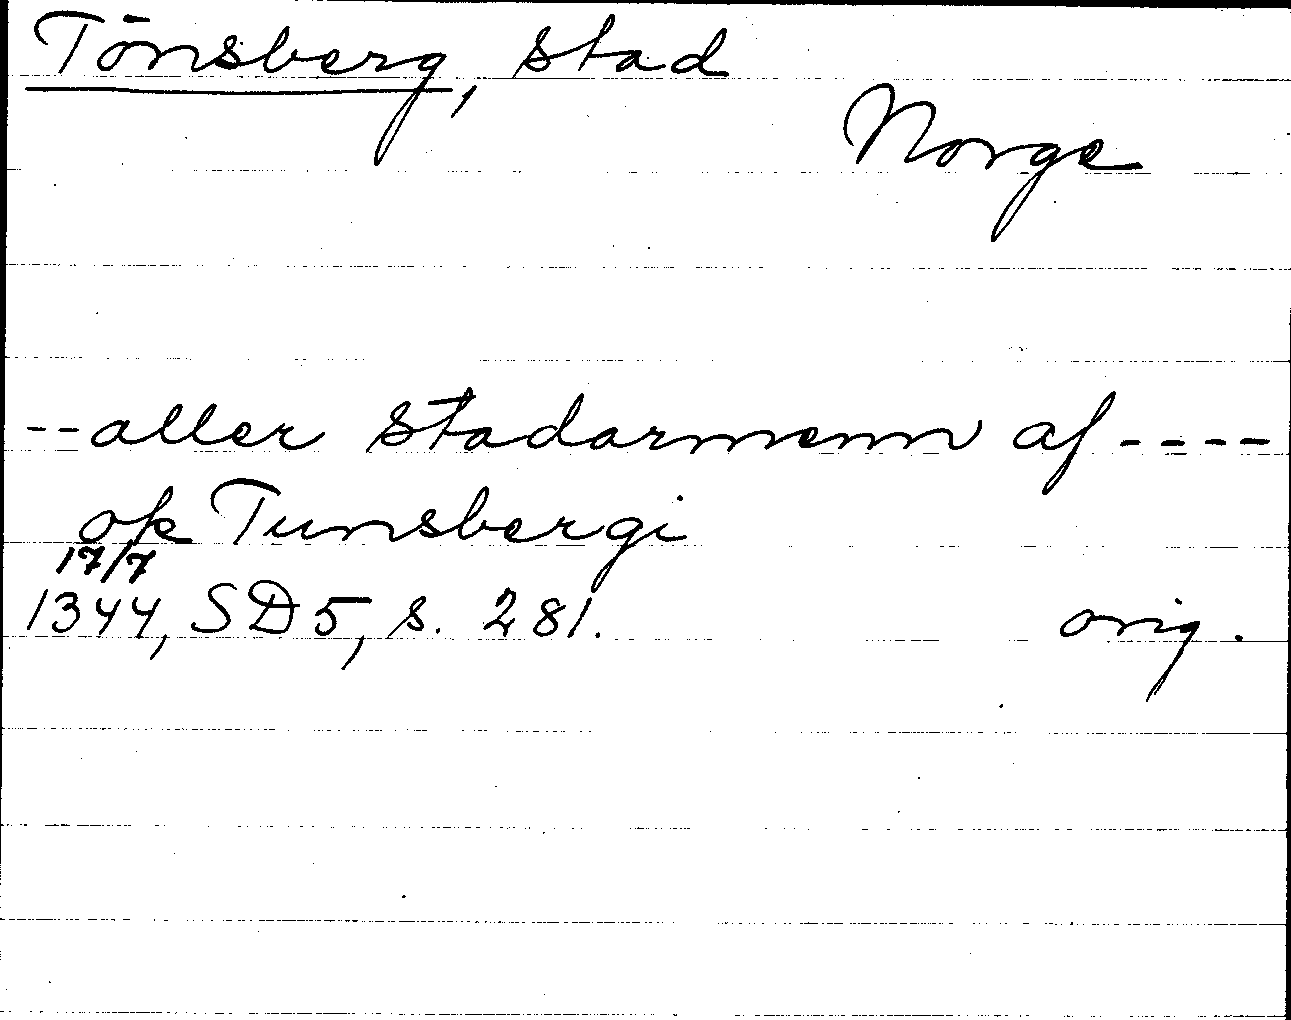 Tönsberg, stad
Norge
-- aller stadarmenn af ----
ok Tunsbergi
17/7
1344, SD 5, s. 281. orig.